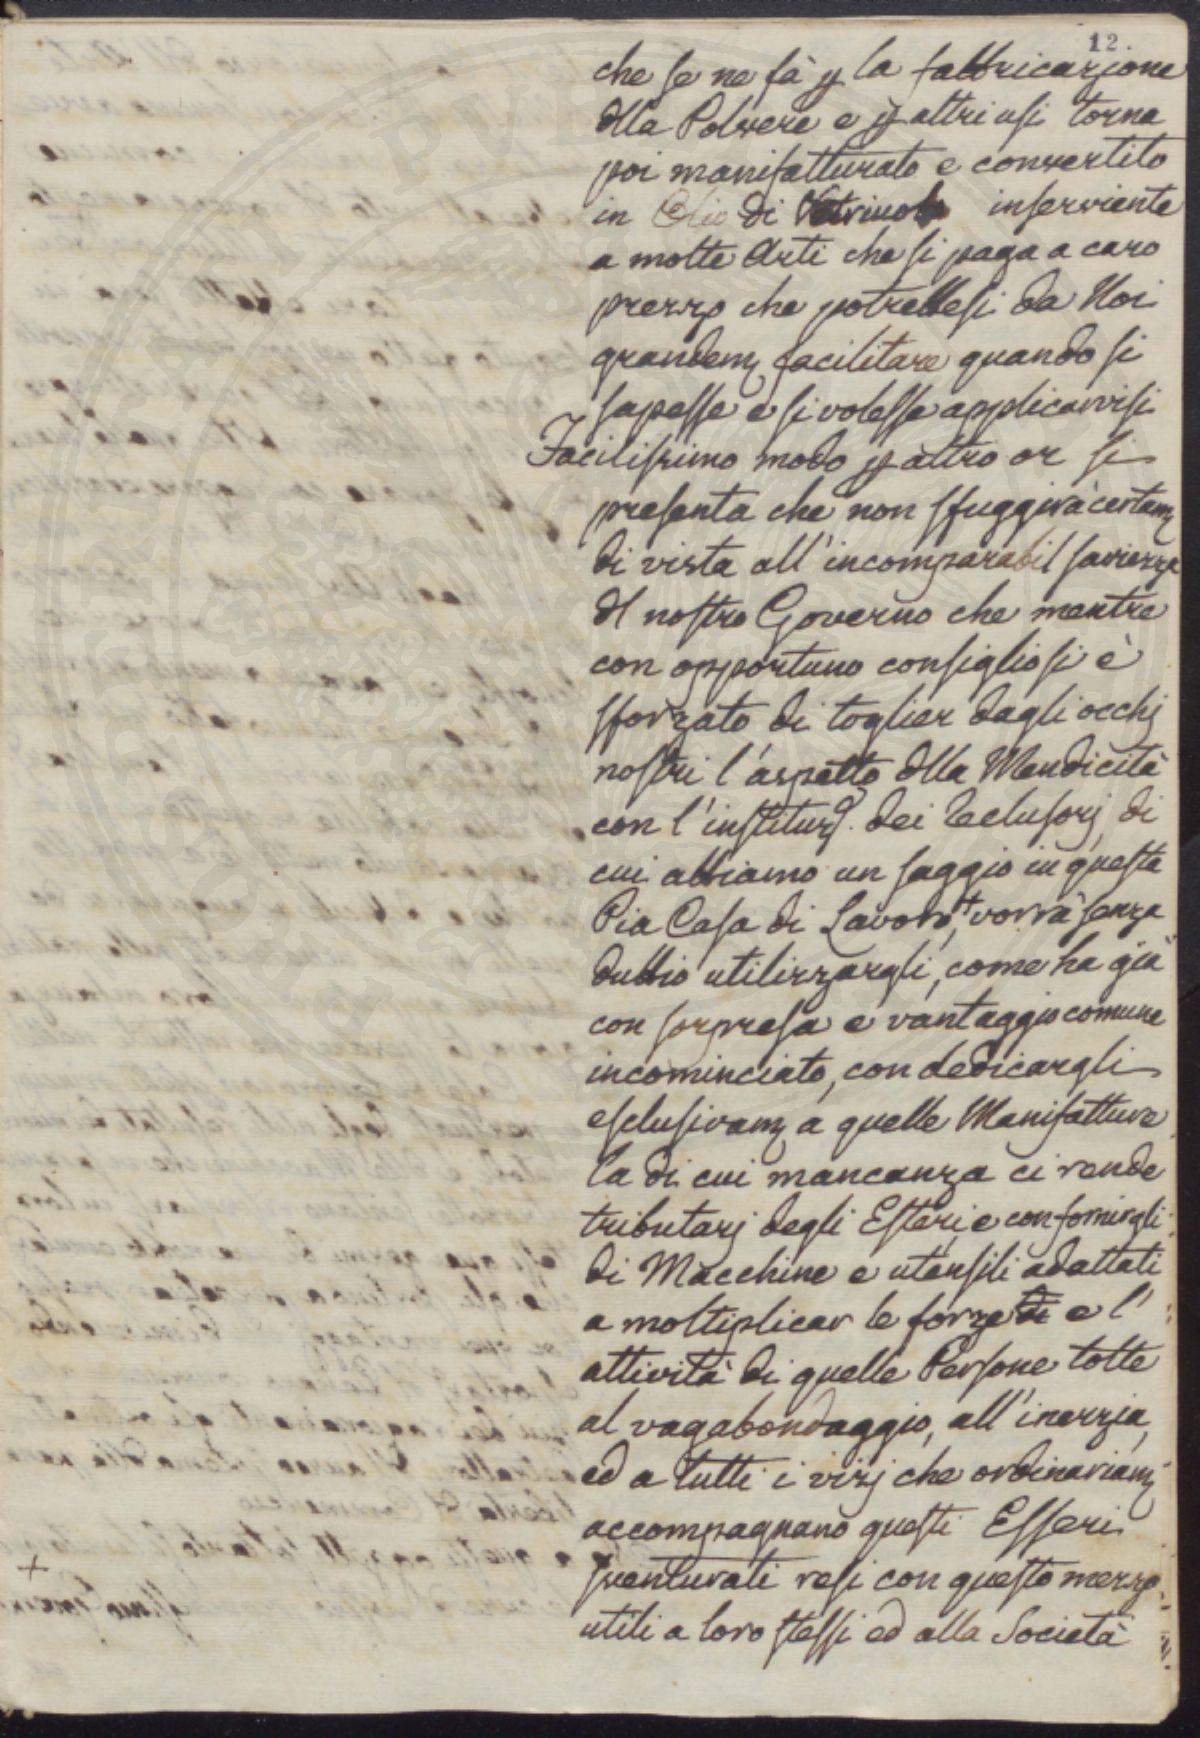 12.
che se ne fà p la fabbricazione
dlla Polvere e p altri usi torna
poi manifatturato e convertito
in Olio di Vetriuolo inserviente
a molte Arti che si paga a caro
prezzo che potrebbesi da Noi
grandem facilitare quando si
sapesse e si volesse applicarvisi
Facilissimo modo p altro or si
presenta che non sfuggirà certam
di vista all'incomparabil saviezza
dl nostro Governo che mentre
con opportuno consiglio si è
sforzato di toglier dagli occhj
nostri l'aspetto dlla Mendicità
con l'instituz.e dei Reclusorj, di
cui abbiamo un saggio in questa
Pia Casa di Lavoro,+ vorrà senza
dubbio utilizzargli, come ha già
con sorpresa e vantaggio comune
incominciato, con dedicargli
esclusivam a quelle Manifatture
la di cui mancanza ci rende
tributarj degli Esteri, e con fornirgli
di Macchine e utensili adattati
a moltiplicar le forze di e l'
attività di quelle Persone tolte
al vagabondaggio, all'inerzia,
ed a tutti i vizj che ordinariam
accompagnano questi Esseri
sventurati resi con questo mezzo
utili a loro stessi ed alla Società
+